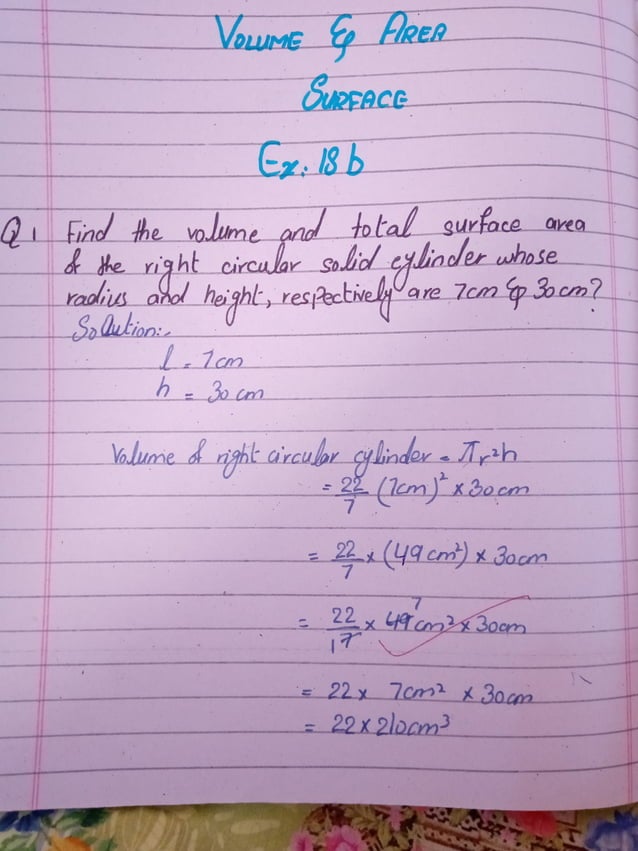 VOLUME & AREA
SURFACE
Ex: 18 b
Q 1 Find the volume and total surface area
of the right circular solid cylinder whose
radius and height, respectively are 7cm & 30cm?
Solution:-
l = 7cm
h = 30 cm
Volume of right circular cylinder = πr²h
= 22/7 (7cm)² × 30cm
= 22/7 × (49 cm²) × 30cm
7
= 22/7 × 49 cm² × 30cm
1
= 22 × 7cm² × 30cm
= 22 × 210cm³